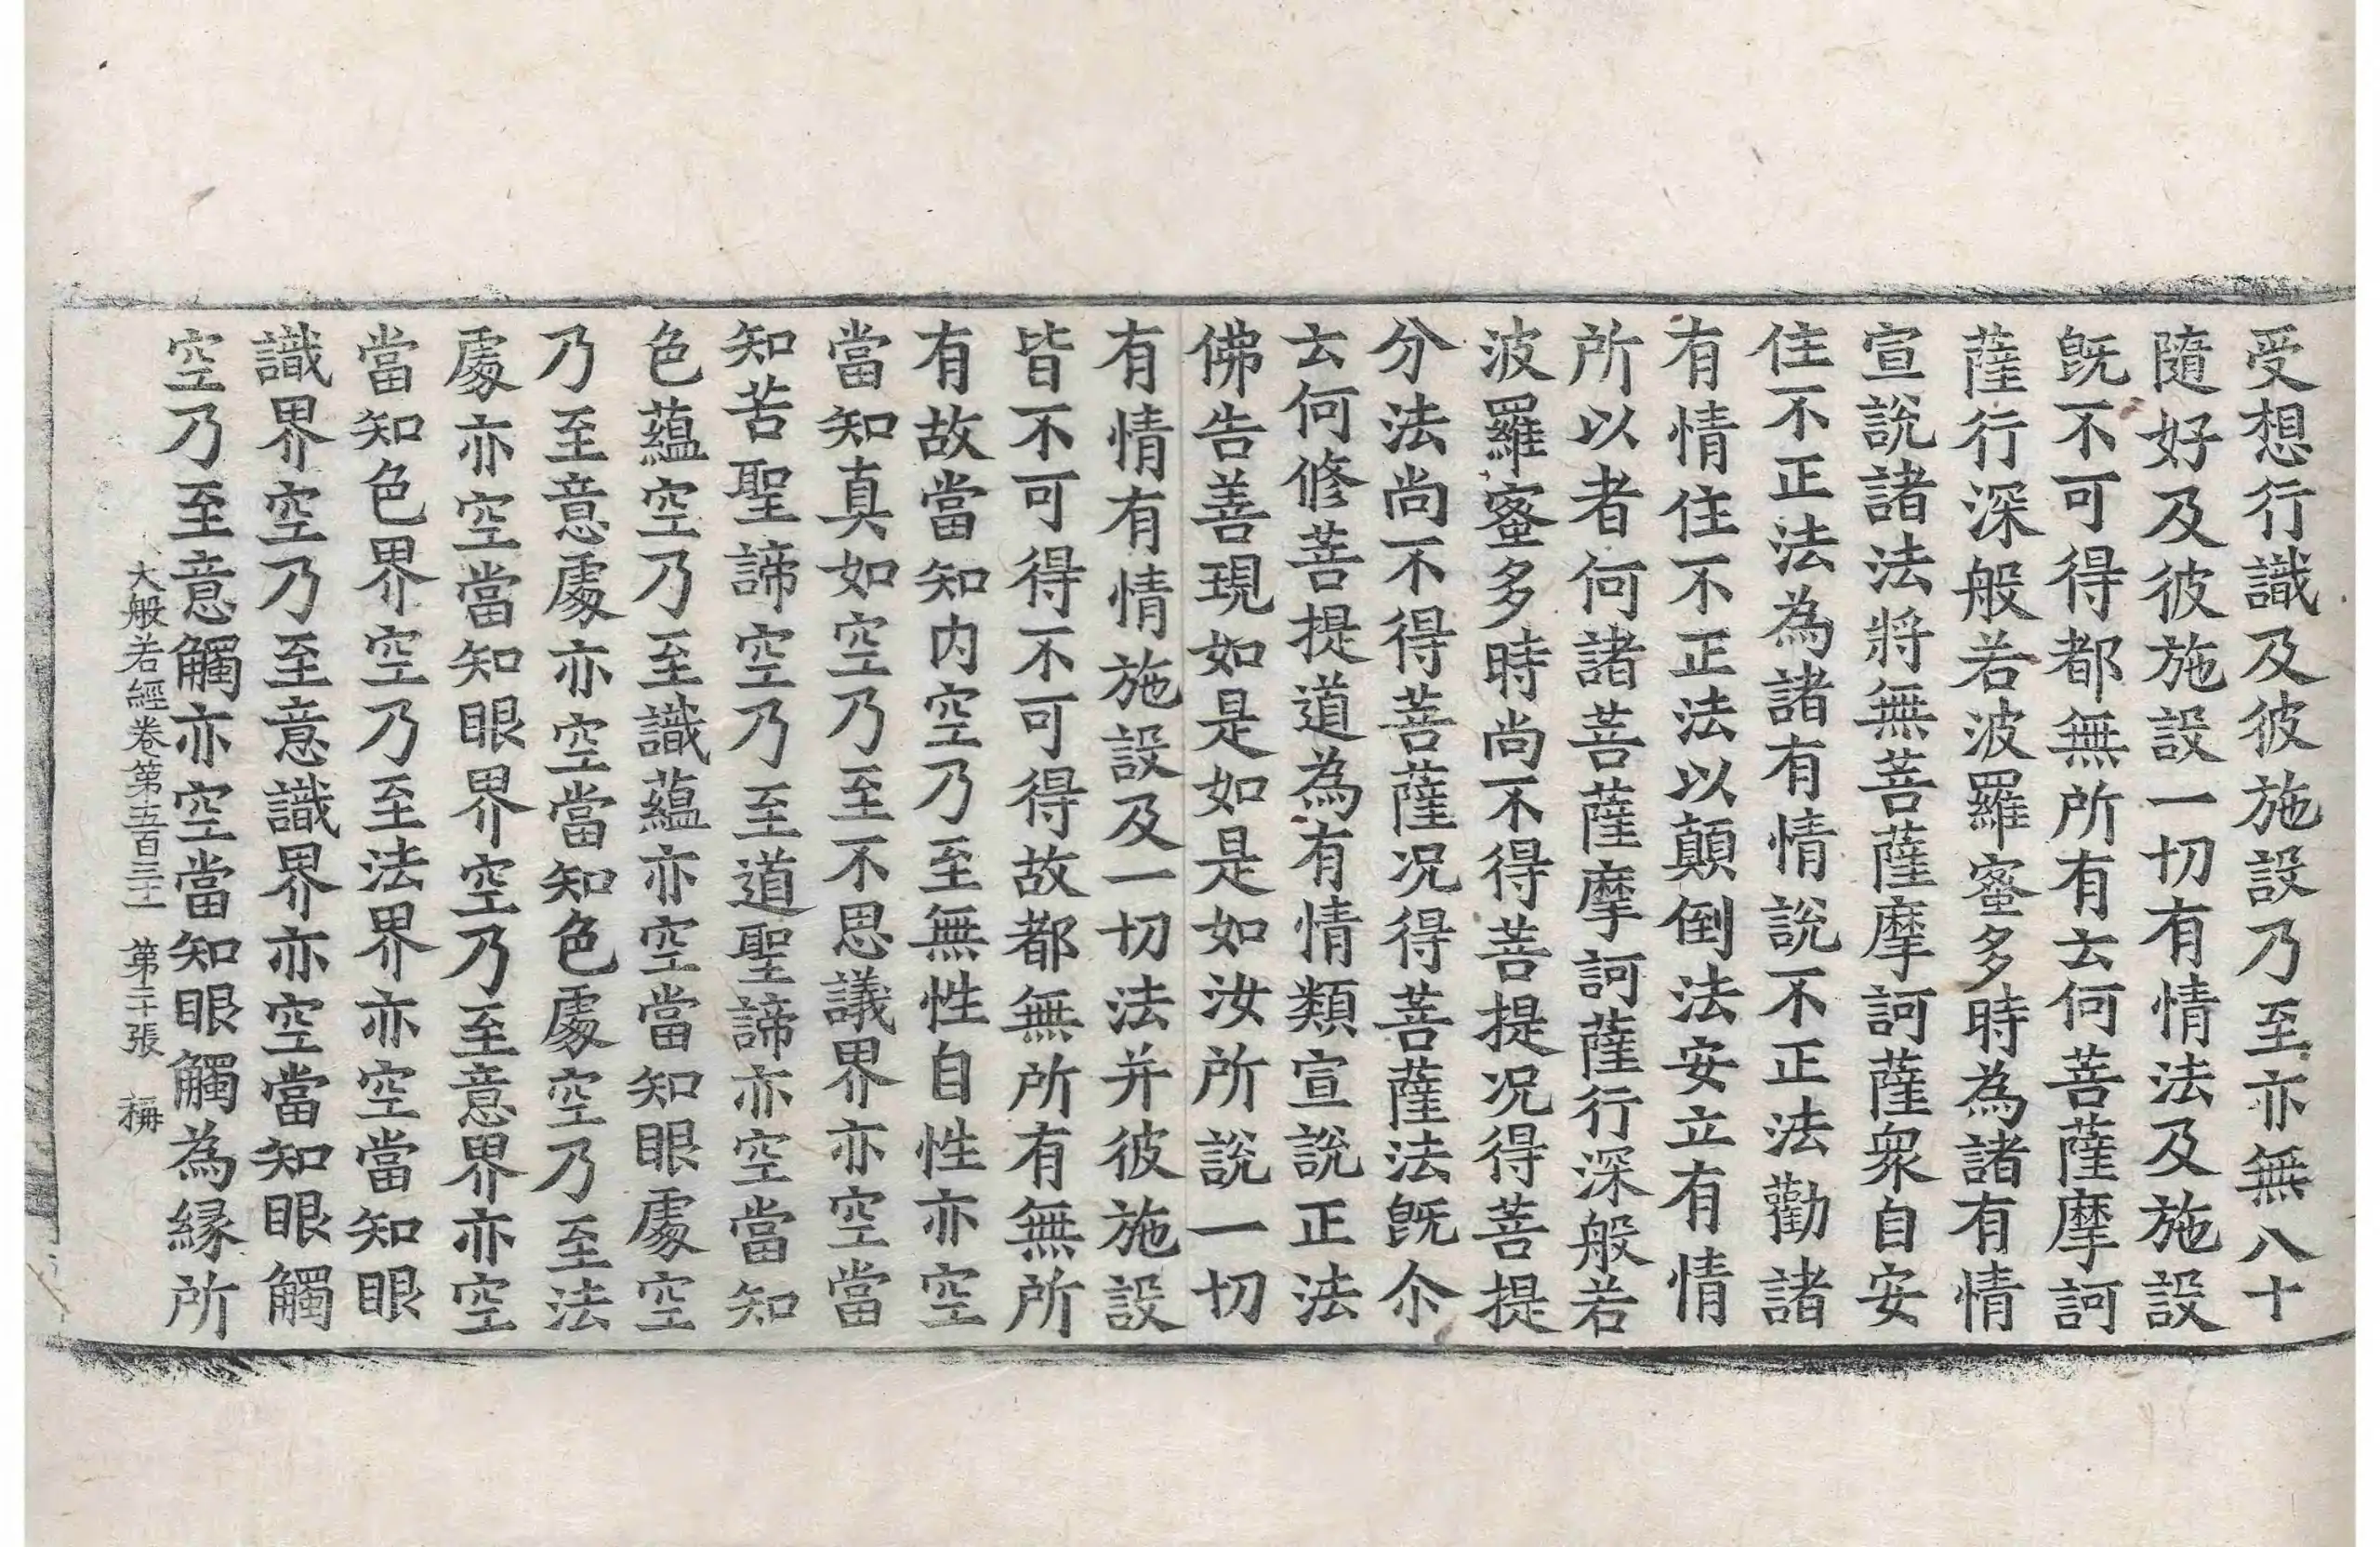 受想行識及彼施設乃至亦無八十
隨好及彼施設一切有情法及施設
旣不可得都無所有云何菩薩摩訶
薩行深般若波羅蜜多時為諸有情
宣說諸法將無菩薩摩訶薩衆自安
住不正法為諸有情說不正法勸諸
有情住不正法以顚倒法安立有情
所以者何諸菩薩摩訶薩行深般若
波羅蜜多時尚不得菩提况得菩提
分法尚不得菩薩况得菩薩法旣尒
云何修菩提道為有情類宣說正法
佛告善現如是如是如汝所說一切
有情有情施設及一切法并彼施設
皆不可得不可得故都無所有無所
有故當知内空乃至無性自性亦空
當知真如空乃至不思議界亦空當
知苦聖諦空乃至道聖諦亦空當知
色蘊空乃至識蘊亦空當知眼處空
乃至意處亦空當知色處空乃至法
處亦空當知眼界空乃至意界亦空
當知色界空乃至法界亦空當知眼
識界空乃至意識界亦空當知眼觸
空乃至意觸亦空當知眼觸為縁所
大般若經卷第五百三十 第二十張 稱